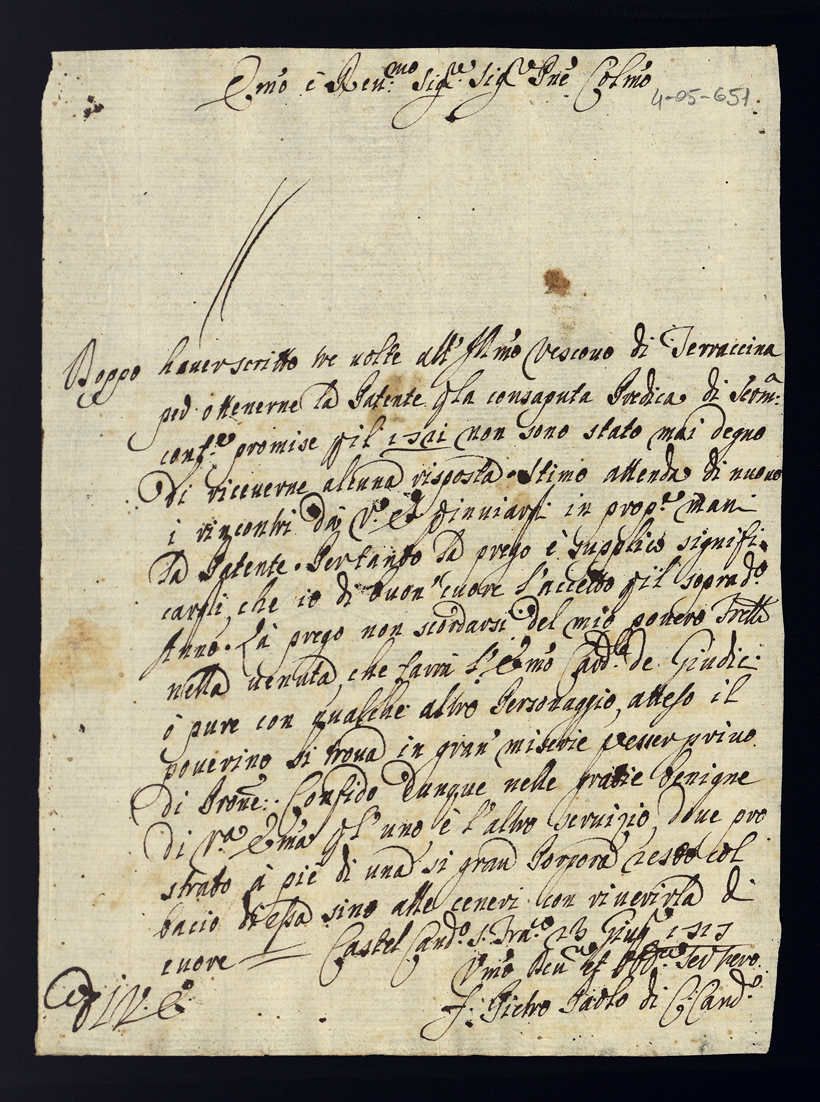 Em̃o è Reu.mo Sig.re Sig.re Pñe Colmo
4-05-651
Doppo hauer scritto tre uolte all' Illmo Vescouo di Terraccina
per ottenerne la Patente p la consaputa Predica di
conf.e promise p il non sono stato mai degno
di riceuerne alcuna risposta. Stimo attenda di nuouo
i rincontri da V. E. p inuiarli in prop.e mani
la Patente. Per tanto la prego è supplico signifi-
carli, che io di buon' cuore l'accetto p il soprad.o
Anno. La prego non scordarsi del mio pouero Frello
nella uenuta, che farrà l'Em̃o Card.le de Giudici
ò pure con qualche altro Personaggio, atteso il
pouerino si troua in gran' miserie p esser priuo
di Prone: Confido dunque nelle gratie benigne
di V.a Em̃a p l'uno, è l'altro seruizio, doue pro
strato à piè di una si gran Porpora resto col
bacio di essa sino alle ceneri con riuerirla di
cuore Castel Cand.o S. Fra.co 23 Giug.o
Vmo Deu.mo et Obb.mo Ser Vero
F. Pietro Paolo di C. Cand.o
V. E.